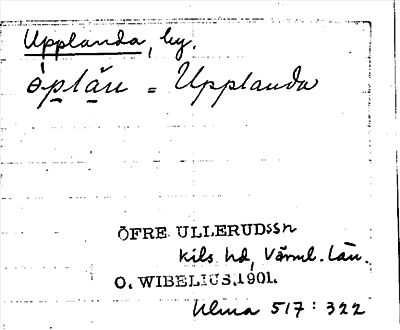 Upplanda, by.
ὀp̱lä̱n = Upplanda
ÖFRE ULLERUDssn
Kils hd, Värml. län.
O. WIBELIUS.1901.
Ulma 517:322